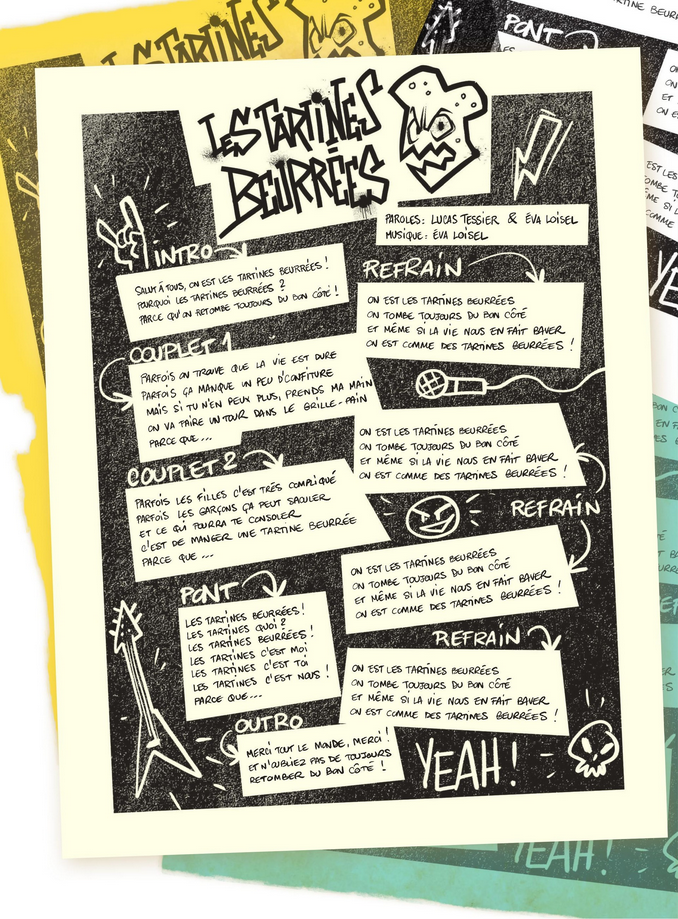 LES TARTINES
LES TARTINES
BEURRÉES
PAROLES : LUCAS TESSIER & ÉVA LOISEL
MUSIQUE : ÉVA LOISEL
INTRO
SALUT À TOUS, ON EST LES TARTINES BEURRÉES !
POURQUOI LES TARTINES BEURRÉES ?
PARCE QU'ON RETOMBE TOUJOURS DU BON CÔTÉ !
REFRAIN
ON EST LES TARTINES BEURRÉES
ON TOMBE TOUJOURS DU BON CÔTÉ
ET MÊME SI LA VIE NOUS EN FAIT BAVER
ON EST COMME DES TARTINES BEURRÉES !
COUPLET 1
PARFOIS ON TROUVE QUE LA VIE EST DURE
PARFOIS ÇA MANQUE UN PEU D'CONFITURE
MAIS SI TU N'EN PEUX PLUS, PRENDS MA MAIN
ON VA FAIRE UN TOUR DANS LE GRILLE-PAIN
PARCE QUE...
ON EST LES TARTINES BEURRÉES
ON TOMBE TOUJOURS DU BON CÔTÉ
ET MÊME SI LA VIE NOUS EN FAIT BAVER
ON EST COMME DES TARTINES BEURRÉES !
REFRAIN
COUPLET 2
PARFOIS LES FILLES C'EST TRÈS COMPLIQUÉ
PARFOIS LES GARÇONS ÇA PEUT SAOULER
ET CE QUI POURRA TE CONSOLER
C'EST DE MANGER UNE TARTINE BEURRÉE
PARCE QUE ...
ON EST LES TARTINES BEURRÉES
ON TOMBE TOUJOURS DU BON CÔTÉ
ET MÊME SI LA VIE NOUS EN FAIT BAVER
ON EST COMME DES TARTINES BEURRÉES !
PONT
LES TARTINES BEURRÉES !
LES TARTINES QUOI ?
LES TARTINES BEURRÉES !
LES TARTINES C'EST MOI
LES TARTINES C'EST TOI
LES TARTINES C'EST NOUS !
PARCE QUE...
REFRAIN
ON EST LES TARTINES BEURRÉES
ON TOMBE TOUJOURS DU BON CÔTÉ
ET MÊME SI LA VIE NOUS EN FAIT BAVER
ON EST COMME DES TARTINES BEURRÉES !
OUTRO
MERCI TOUT LE MONDE, MERCI !
ET N'OUBLIEZ PAS DE TOUJOURS
RETOMBER DU BON CÔTÉ !
YEAH !
PONT
YEAH !